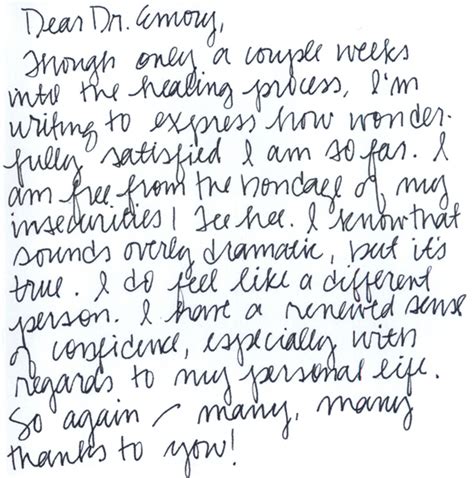 Dear Dr. Emory,
Though only a couple weeks
into the healing process, I'm
writing to express how wonder-
fully satisfied I am so far. I
am free from the bondage of my
insecurities! Tee hee. I know that
sounds overly dramatic, but it's
true. I do feel like a different
person. I have a renewed sense
of confidence, especially with
regards to my personal life.
So again – many, many
thanks to you!